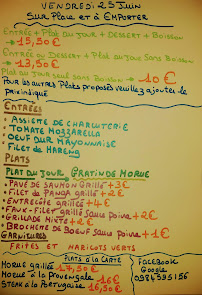 VENDREDI 25 JUIN
SUR PLACE ET à EMPORTER
ENTRÉE + PLAT DU JOUR + DESSERT + BOISSON
→ 15,50 €
ENTRÉE OU DESSERT + PLAT DU JOUR SANS BOISSON
→ 13,50 €
PLAT DU JOUR SEUL SANS BOISSON → 10 €
Pour les autres Plats proposés veuillez ajouter le
prix indiqué
ENTRÉES
• ASSIETTE DE CHARCUTERIE
• TOMATE MOZZARELLA
• OEUF DUR MAYONNAISE
• FILET DE HARENG
PLATS
PLAT DU JOUR, GRATIN DE MORUE
• PAVÉ DE SAUMON GRILLÉ +3€
• FILET DE PANGA GRILLÉ +2€
• ENTRECÔTE GRILLÉE +4€
• FAUX-FILET GRILLÉ SAUCE POIVRE +2€
• GRILLADE MIXTE +2€
• BROCHETTE DE BOEUF SAUCE POIVRE +1€
GARNITURES
FRITES ET HARICOTS VERTS
PLATS à LA CARTE
MORUE grillée 17,50€
MORUE à la provençale 16€
STEAK à la Portugaise 16,50€
FACEBOOK
Google